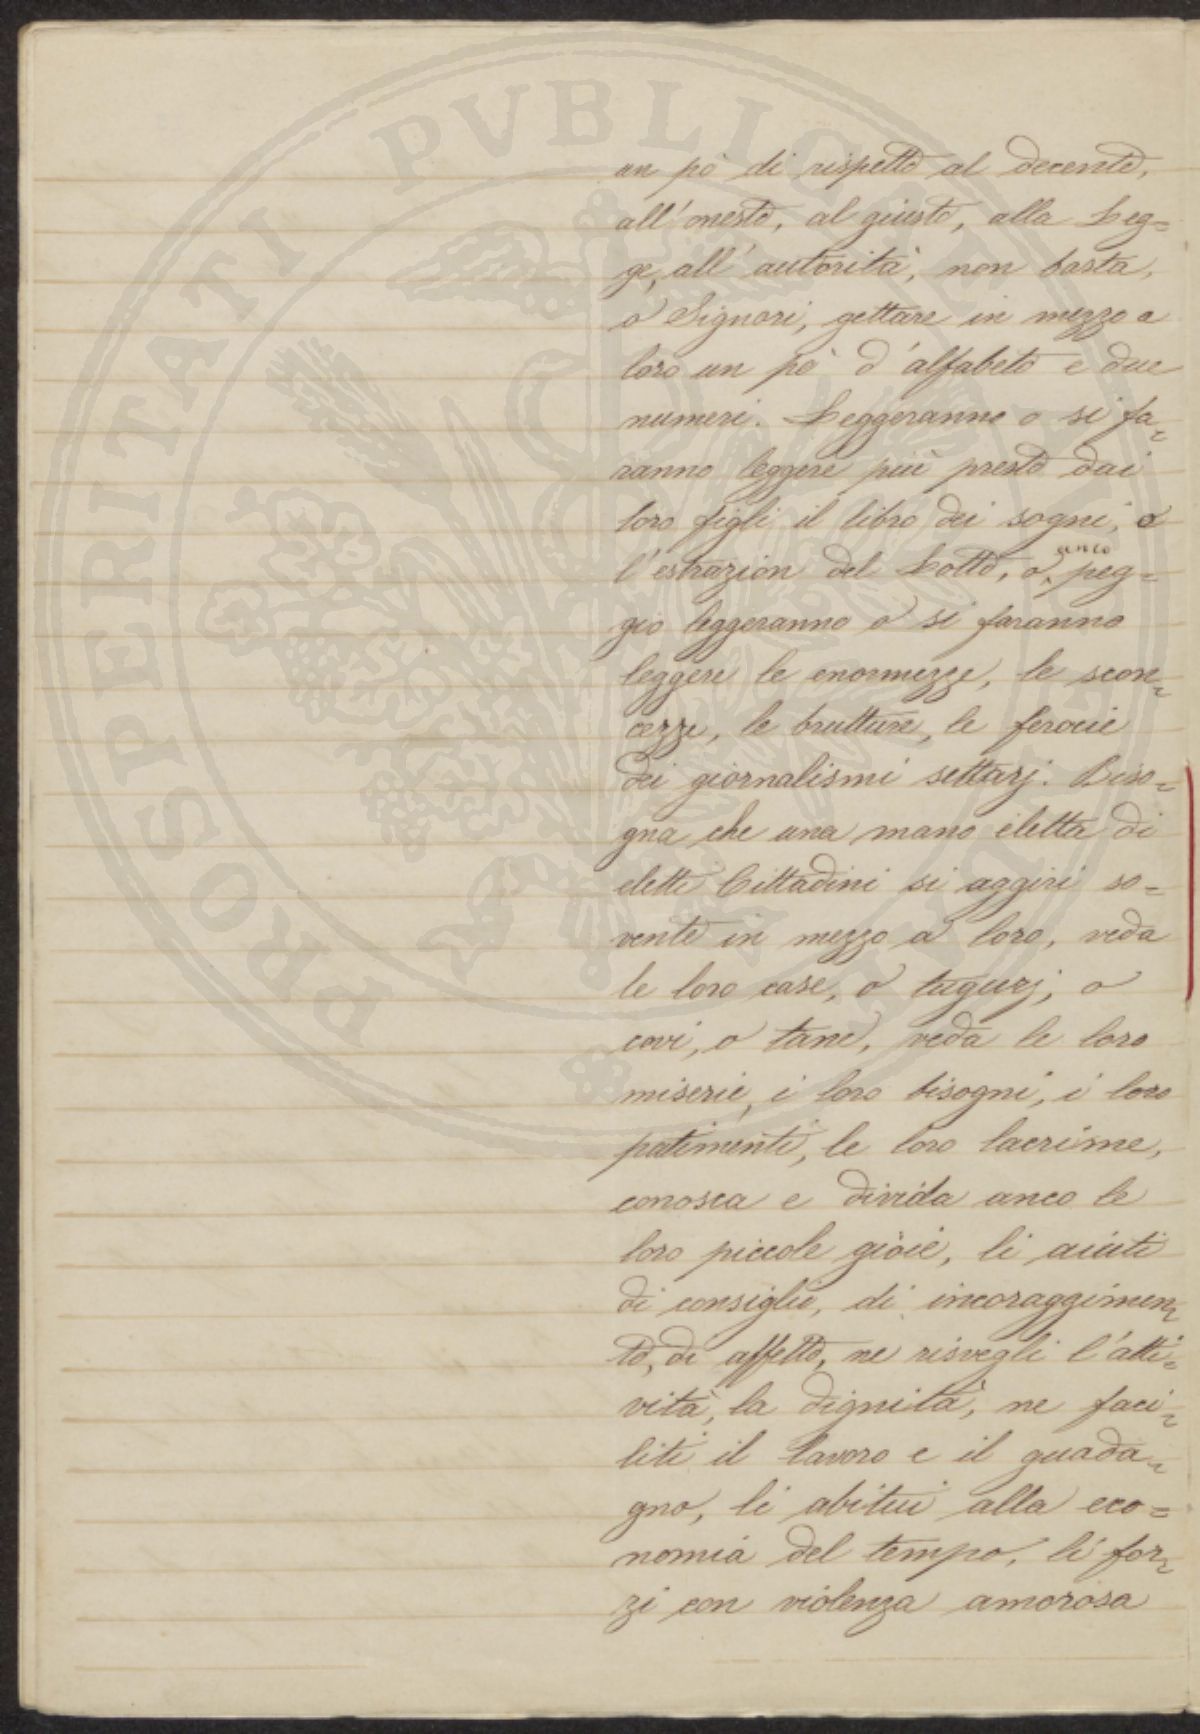 PROSPERITATI PVBLICAE
un pò di rispetto al decente,
all'onesto, al giusto, alla Leg=
ge, all'autorità, non basta,
o Signori, gettare in mezzo a
loro un pò d'alfabeto e due
numeri. Leggeranno o si fa=
ranno leggere più presto dai
loro figli il libro dei sogni, o
anco
l'estrazion del Lotto, o peg=
gio leggeranno o si faranno
leggere le enormezze, le scon=
cezze, le brutture, le ferocie
dei giornalismi settarj. Biso=
gna che una mano eletta di
eletti Cittadini si aggiri so=
vente in mezzo a loro, veda
le loro case, o tugurj, o
covi, o tane, veda le loro
miserie, i loro bisogni, i loro
patimenti, le loro lacrime,
conosca e divida anco le
loro piccole gioie, li aiuti
di consiglio, di incoraggimen=
to, di affetto, ne risvegli l'atti=
vità, la dignità, ne faci=
liti il lavoro e il guada=
gno, li abitui alla eco=
nomia del tempo, li for=
zi con violenza amorosa